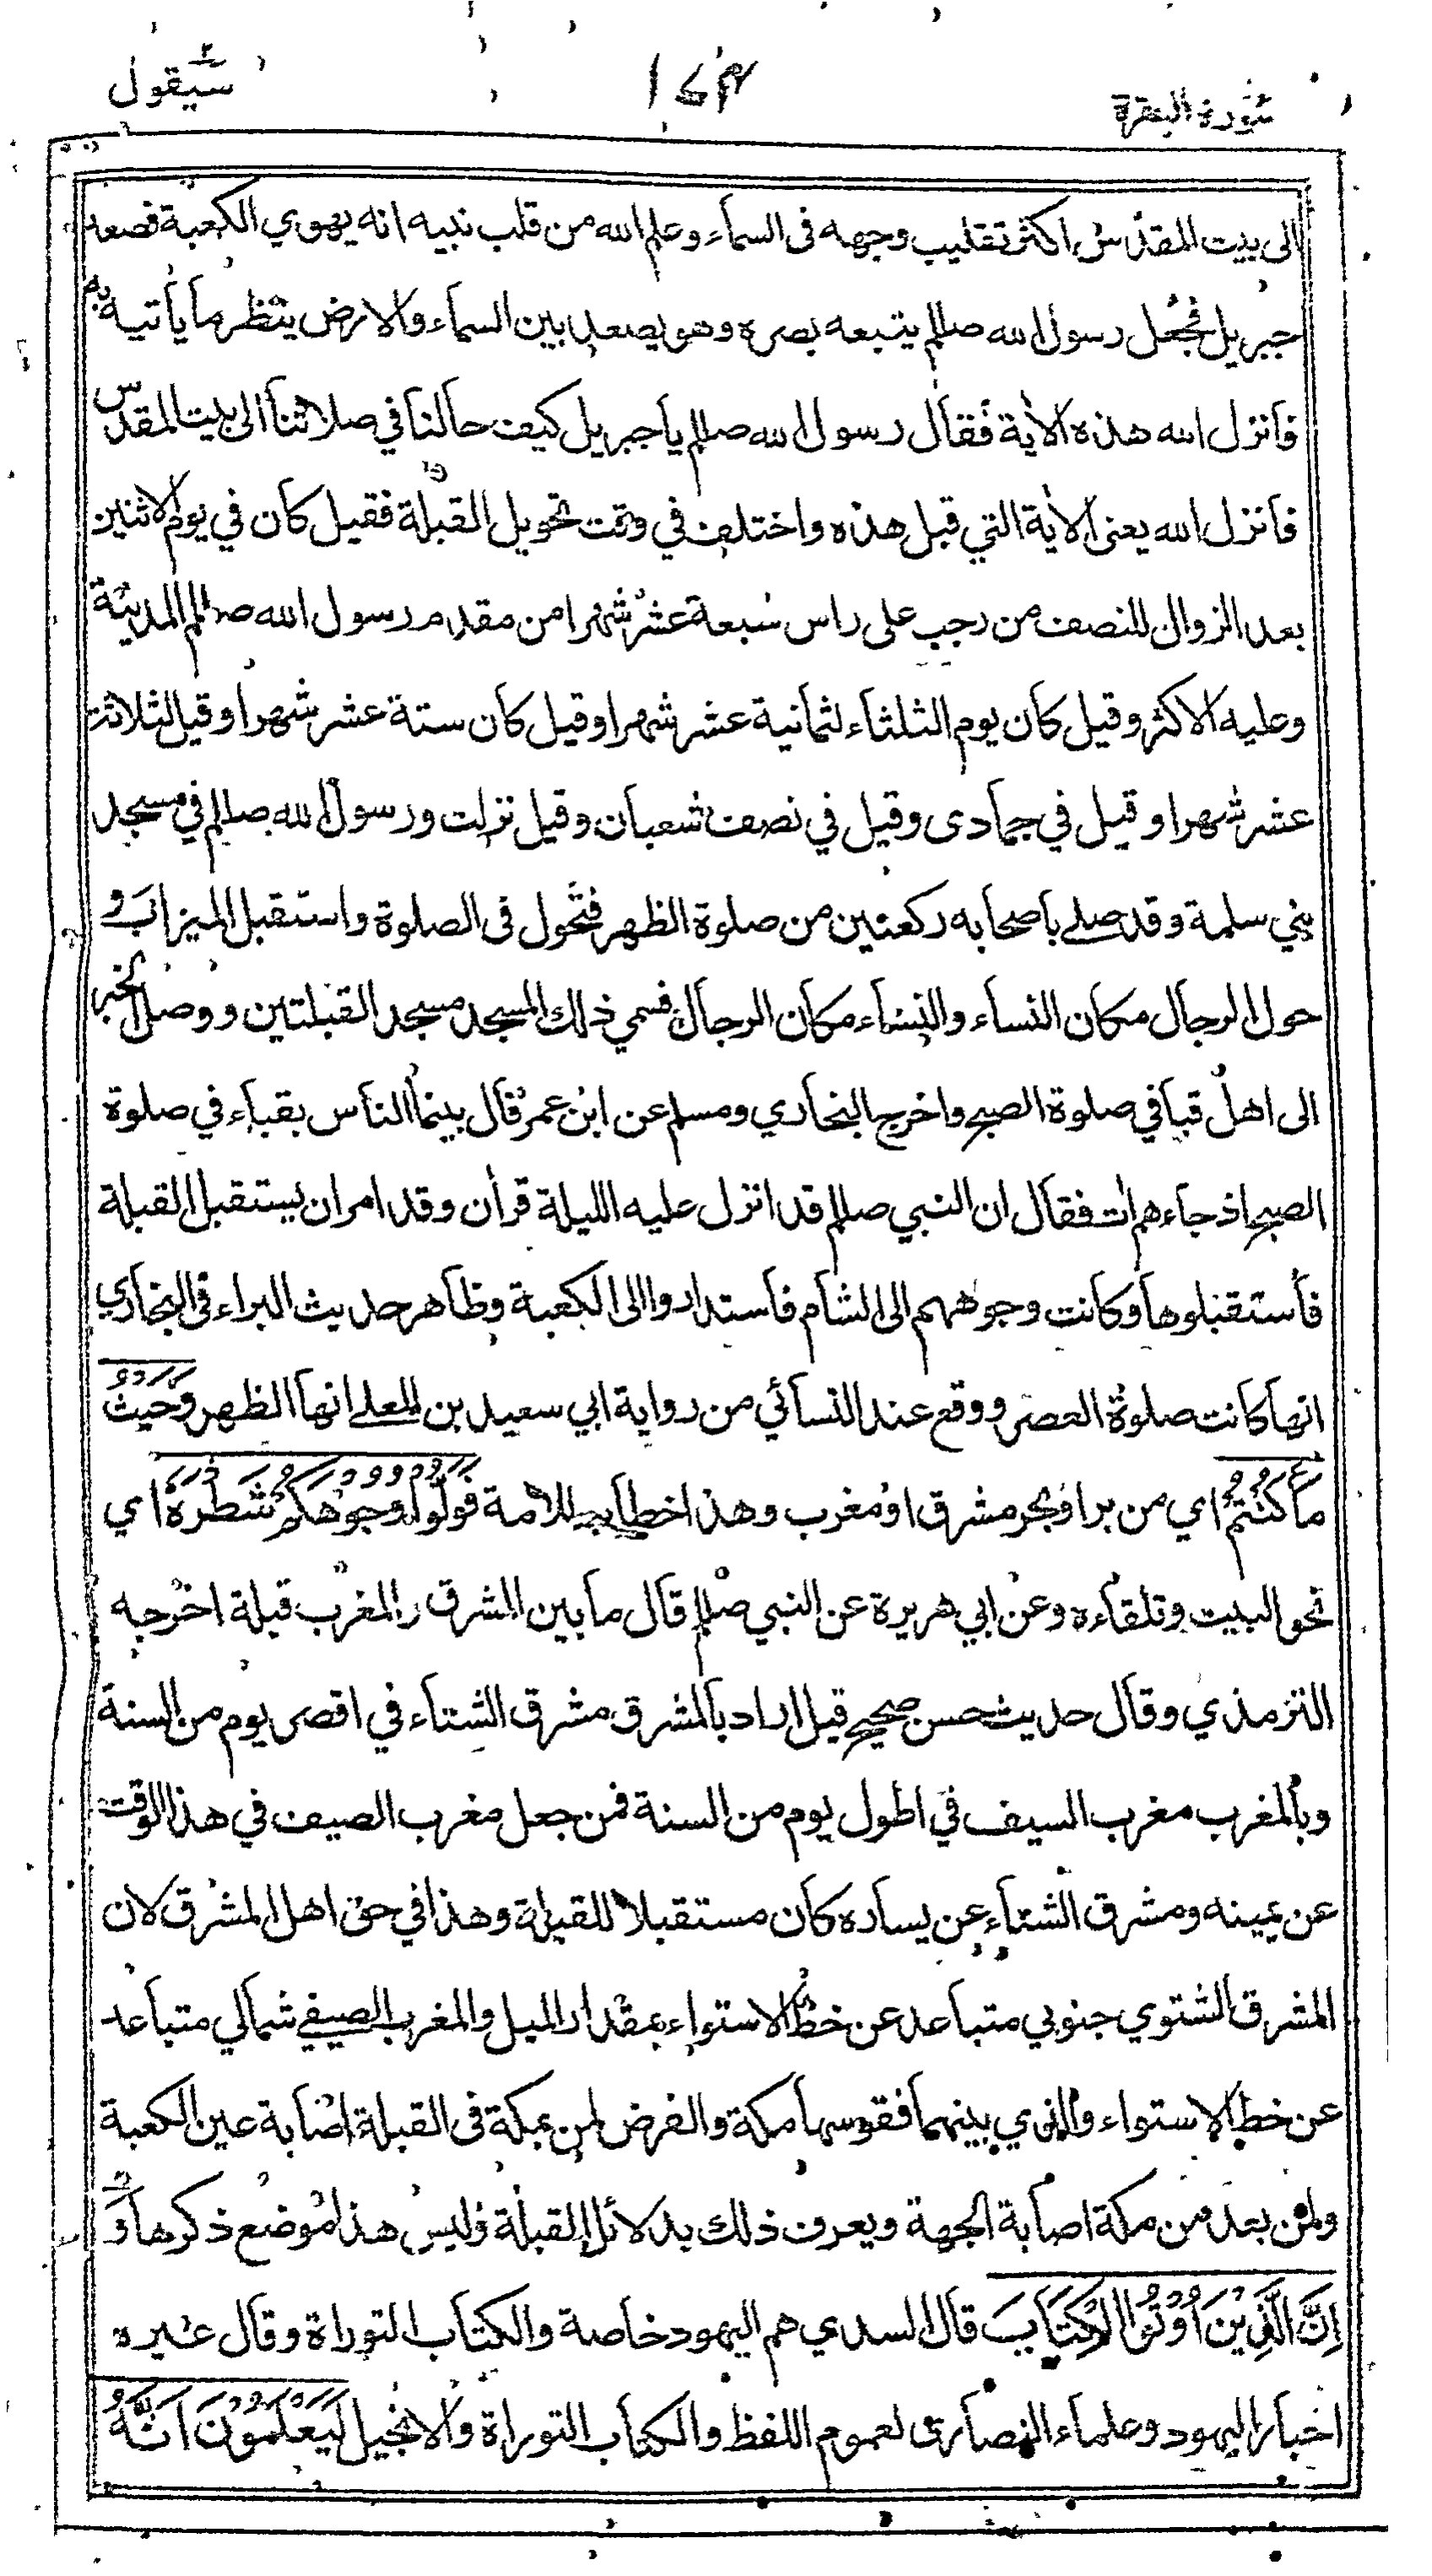 سورة البقرة ١٧٣ سيقول ٢
الى بيت المقدس اكثر تقليب وجهه فى السماء وعلم الله من قلب نبيه انه يهوي الكعبة فصعد
جبريل فجعل رسول الله صللم يتبعه بصره وهو يصعد بين السماء والارض ينظر ما يأتيه به
فانزل الله هذه الاية فقال رسول الله صللم يا جبريل كيف حالنا في صلاتنا الى بيت المقدس
فانزل الله يعنى الاية التي قبل هذه واختلف في وقت تحويل القبلة فقيل كان في يوم الاثنين
بعد الزوال للنصف من رجب على راس سبعة عشر شهرا من مقدم رسول الله صللم المدينة
وعليه الاكثر وقيل كان يوم الثلثاء لثمانية عشر شهرا وقيل كان ستة عشر شهرا وقيل ثلاثة
عشر شهرا وقيل في جمادى وقيل في نصف شعبان وقيل نزلت ورسول الله صللم في مسجد
بني سلمة وقد صلے باصحابه ركعتين من صلوة الظهر فتحول فى الصلوة واستقبل الميزاب و
حول الرجال مكان النساء والنساء مكان الرجال فسمي ذلك المسجد مسجد القبلتين ووصل الخبر
الى اهل قبا في صلوة الصبح واخرج البخاري ومسلم عن ابن عمر قال بينما الناس بقباء في صلوة
الصبح اذ جاءهم ات فقال ان النبي صللم قد انزل عليه الليلة قرأن وقد امر ان يستقبل القبلة
فاستقبلوها وكانت وجوههم الى الشام فاستداروا الى الكعبة وظاهر حديث البراء فى البخاري
انها كانت صلوة العصر ووقع عند النسائي من رواية ابي سعيد بن المعلے انها الظهر وَحَيْثُ
مَا كُنْتُمْ اي من بر او بحر مشرق او مغرب وهذا خطاب للامة فَوَلُّوا وُجُوْهَكُمْ شَطْرَهُ اي
نحو البيت وتلقاءه وعن ابي هريرة عن النبي صللم قال ما بين المشرق والمغرب قبلة اخرجه
الترمذي وقال حديث حسن صحيح قيل اراد بالمشرق مشرق الشتاء في اقصر يوم من السنة
وبالمغرب مغرب السيف في اطول يوم من السنة فمن جعل مغرب الصيف في هذا الوقت
عن يمينه ومشرق الشتاء عن يساره كان مستقبلا للقبلة وهذا في حق اهل المشرق لان
المشرق الشتوي جنوبي متباعد عن خط الاستواء بمقدار الميل والمغرب الصيفي شمالي متباعد
عن خط الاستواء والذي بينهما فقوسها مكة والفرض لمن بمكة فى القبلة اصابة عين الكعبة
ولمن بعد من مكة اصابة الجهة ويعرف ذلك بدلائل القبلة وليس هذا موضع ذكرها وَ
اِنَّ الَّذِيْنَ اُوْتُوا الْكِتَابَ قال السدي هم اليهود خاصة والكتاب التوراة وقال غيره
احبار اليهود وعلماء النصارى لعموم اللفظ والكتاب التوراة والانجيل لَيَعْلَمُوْنَ اَنَّهُ